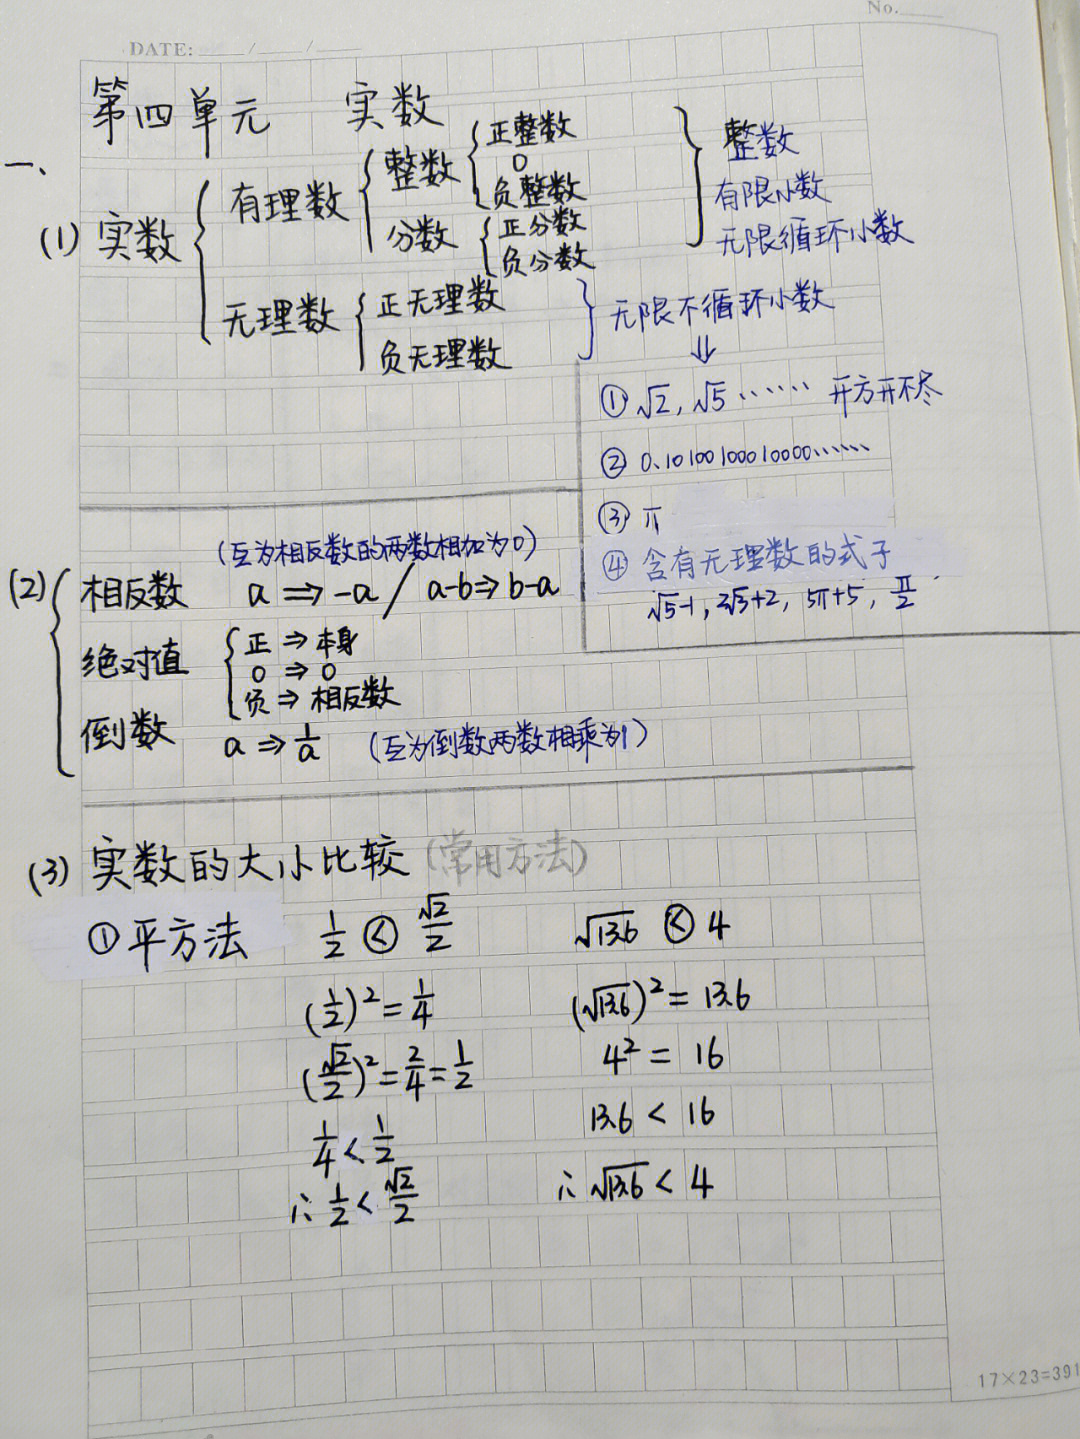 No.
DATE: / /
第四单元 实数
一、
(1) 实数 { 有理数 { 整数 { 正整数
0
负整数
分数 { 正分数
负分数
} 整数
有限小数
无限循环小数
无理数 { 正无理数
负无理数
} 无限不循环小数
⇓
① √2, √5 …… 开方开不尽
② 0.1010010001 0000……
③ π
④ 含有无理数的式子
√5-1, 2√3+2, 5π+5, π/2
(2) { 相反数 (互为相反数的两数相加为0)
a ⇒ -a / a-b ⇒ b-a
绝对值 { 正 ⇒ 本身
0 ⇒ 0
负 ⇒ 相反数
倒数 a ⇒ 1/a (互为倒数两数相乘为1)
(3) 实数的大小比较 (常用方法)
① 平方法 1/2 < √2/2 √13.6 < 4
(1/2)² = 1/4 (√13.6)² = 13.6
(√2/2)² = 2/4 = 1/2 4² = 16
1/4 < 1/2 13.6 < 16
∴ 1/2 < √2/2 ∴ √13.6 < 4
17×23=391